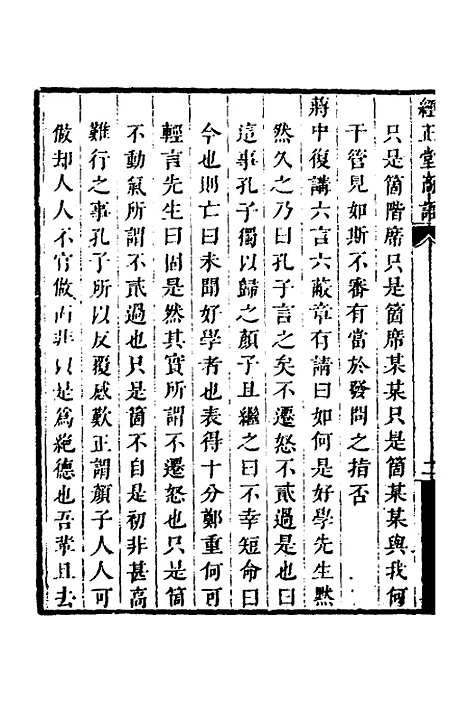 經正堂商語
二
只是箇階席只是箇席某某只是箇某某與我何
干管見如斯不審有當於發問之指否
蔣中復講六言六蔽章有請曰如何是好學先生黙
然久之乃曰孔子言之矣不遷怒不貳過是也曰
這事孔子獨以歸之顏子且繼之曰不幸短命曰
今也則亡曰未聞好學者也表得十分鄭重何可
輕言先生曰固是然其實所謂不遷怒也只是箇
不動氣所謂不貳過也只是箇不自是初非甚高
難行之事孔子所以反覆感歎正謂顏子人人可
做却人人不肯做而非只是爲絶德也吾輩且去